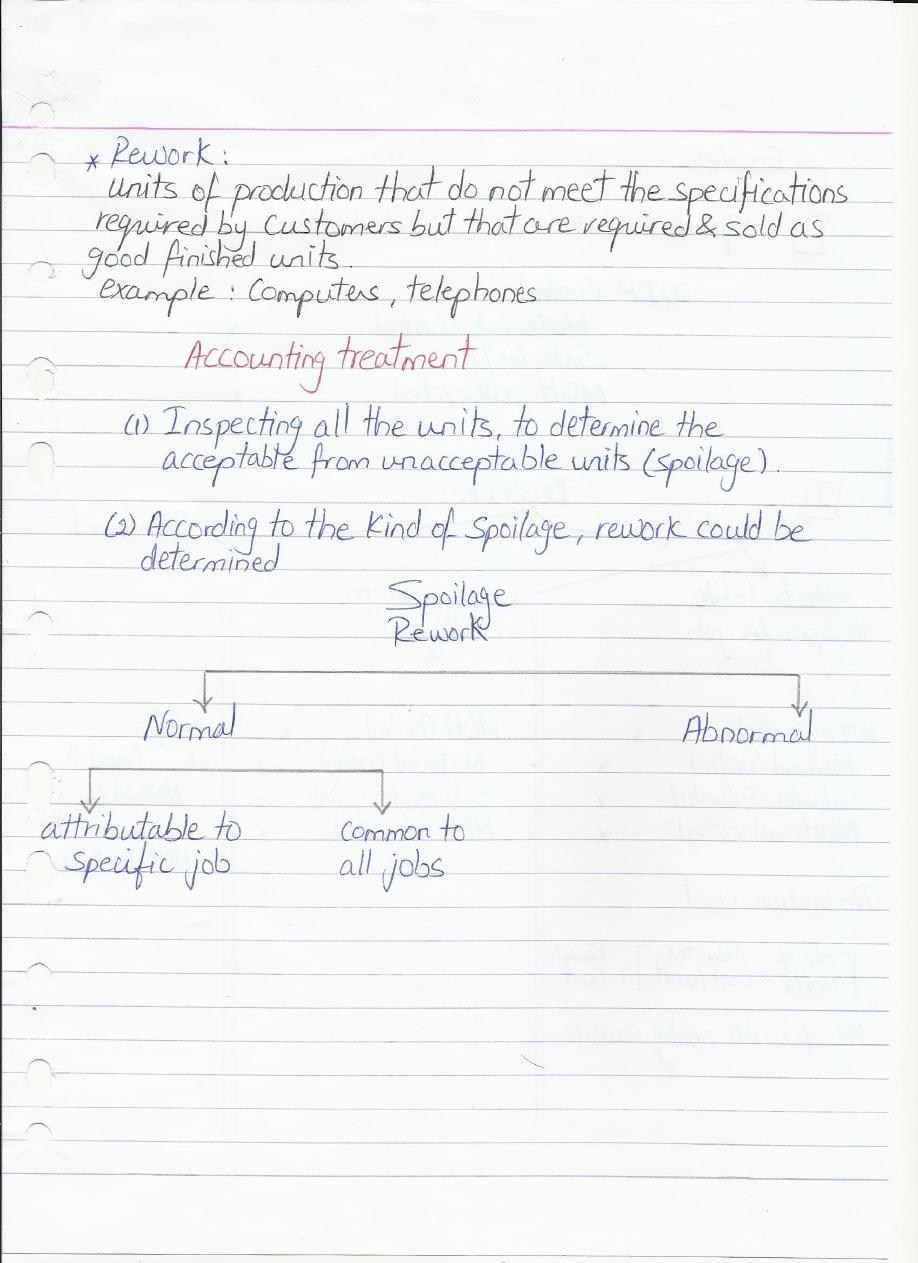 * Rework:
units of production that do not meet the specifications
required by Customers but that are required & sold as
good finished units.
example : Computers, telephones
Accounting treatment
(1) Inspecting all the units, to determine the
acceptable from unacceptable units (spoilage).
(2) According to the Kind of Spoilage, rework could be
determined
Spoilage
Rework
Normal
Abnormal
attributable to
Specific job
Common to
all jobs